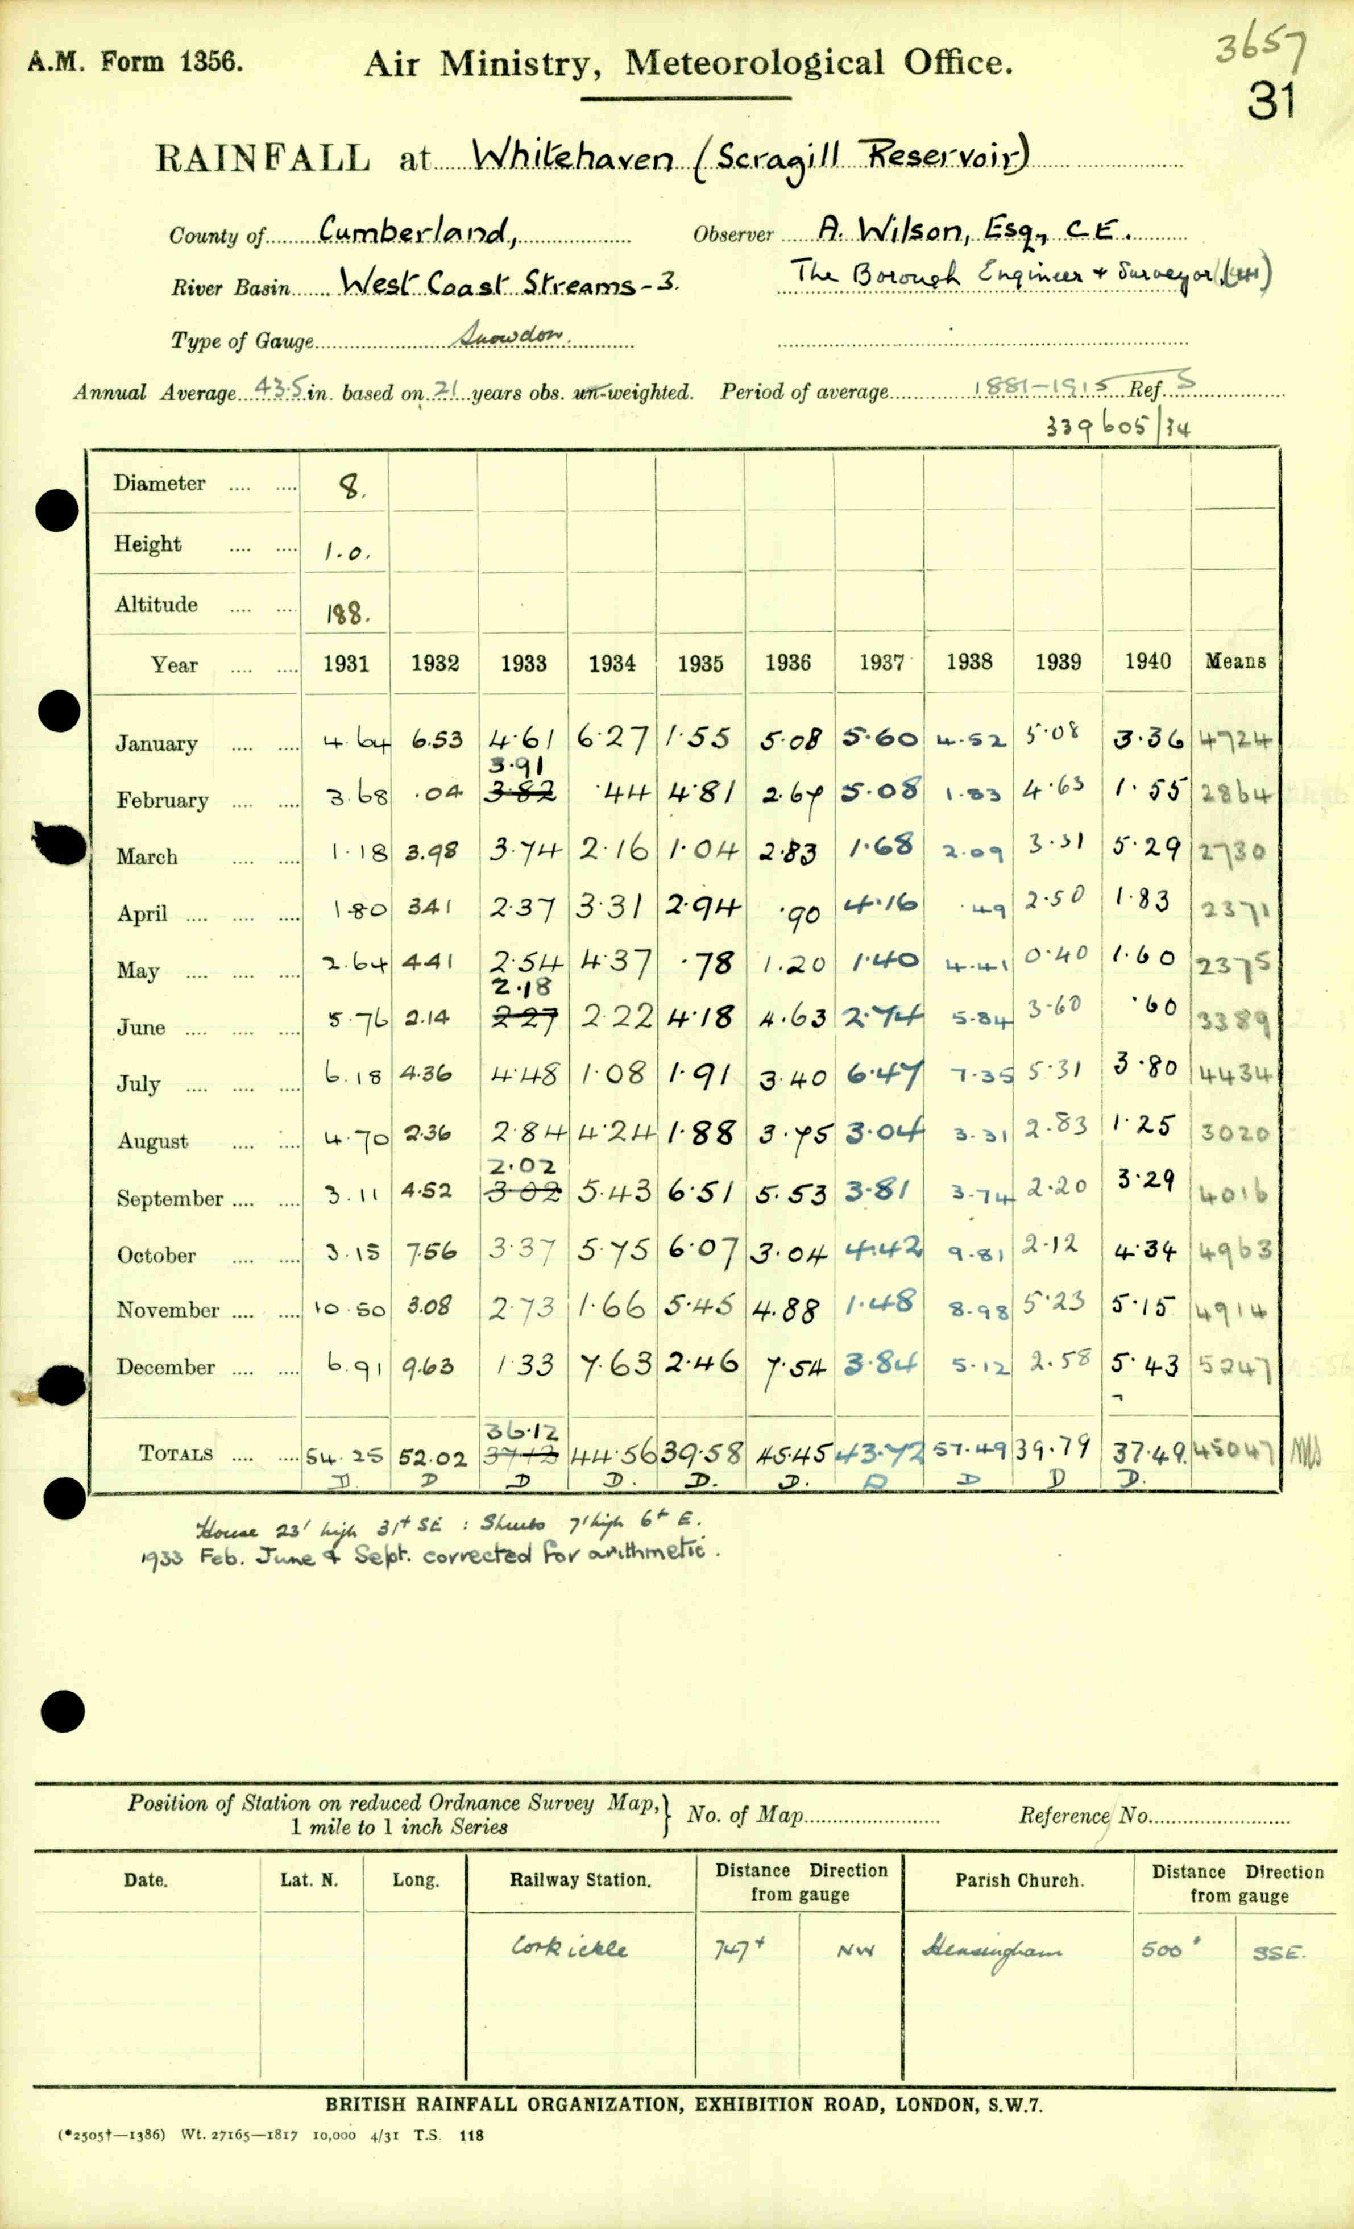 3657
A.M. Form 1356. Air Ministry, Meteorological Office.
31
RAINFALL at Whitehaven (Scragill Reservoir)
County of Cumberland, Observer A. Wilson, Esq., C.E.
River Basin West Coast Streams-3. The Borough Engineer + Surveyor (44)
Type of Gauge Snowdon.
Annual Average 43.5 in. based on 21 years obs. un-weighted. Period of average 1881-1915 Ref. S
339605/34
Diameter .... .... 8.
Height .... .... 1.0.
Altitude .... .... 188.
Year .... .... 1931 1932 1933 1934 1935 1936 1937 1938 1939 1940 Means
January .... .... 4.64 6.53 4.61 6.27 1.55 5.08 5.60 4.52 5.08 3.36 4724
3.91
February .... .... 3.68 .04 3.82 .44 4.81 2.67 5.08 1.83 4.63 1.55 2864
March .... .... 1.18 3.98 3.74 2.16 1.04 2.83 1.68 2.09 3.31 5.29 2730
April .... .... .... 1.80 3.41 2.37 3.31 2.94 .90 4.16 .49 2.50 1.83 2371
May .... .... .... 2.64 4.41 2.54 4.37 .78 1.20 1.40 4.41 0.40 1.60 2375
2.18
June .... .... .... 5.76 2.14 2.27 2.22 4.18 4.63 2.74 5.84 3.60 .60 3389
July .... .... .... 6.18 4.36 4.48 1.08 1.91 3.40 6.47 7.35 5.31 3.80 4434
August .... .... 4.70 2.36 2.84 4.24 1.88 3.75 3.04 3.31 2.83 1.25 3020
2.02
September .... .... 3.11 4.52 3.02 5.43 6.51 5.53 3.81 3.74 2.20 3.29 4016
October .... .... 3.15 7.56 3.37 5.75 6.07 3.04 4.42 9.81 2.12 4.34 4963
November .... .... 10.50 3.08 2.73 1.66 5.45 4.88 1.48 8.98 5.23 5.15 4914
December .... .... 6.91 9.63 1.33 7.63 2.46 7.54 3.84 5.12 2.58 5.43 5247
36.12
TOTALS .... .... 54.25 52.02 37.12 44.56 39.58 45.45 43.72 57.49 39.79 37.49. 45047
D. D D D. D. D. D D D D.
House 23' high 31+ SE : Shrubs 7' high 6+ E.
1933 Feb. June & Sept. corrected for arithmetic.
Position of Station on reduced Ordnance Survey Map, 1 mile to 1 inch Series } No. of Map Reference No.
Date. Lat. N. Long. Railway Station. Distance Direction from gauge Parish Church. Distance Direction from gauge
Corkickle 747+ NW Hensingham 500+ SSE.
BRITISH RAINFALL ORGANIZATION, EXHIBITION ROAD, LONDON, S.W.7.
(*2505†—1386) Wt. 27165—1817 10,000 4/31 T.S. 118